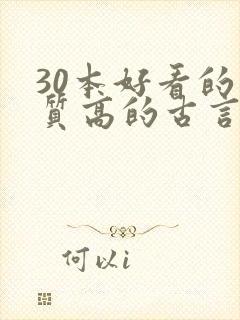 30本好看的
质高的古言
何以i